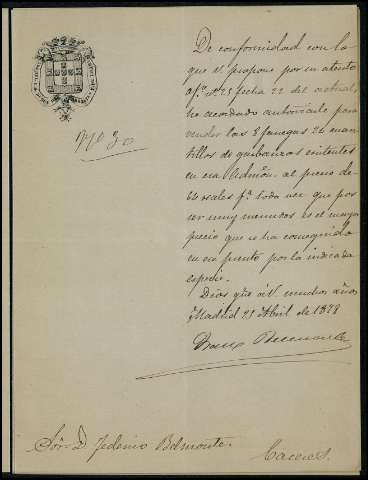 Nº 30
De conformidad con lo
que V. propone por su atento
of.º nº 25 fecha 22 del actual,
he acordado autorizarle para
vender las 8 fanegas 26 cuar-
tillos de garbanzos existentes
en esa Admón. al precio de
64 reales f.ª toda vez que por
ser muy menudos es el mayor
precio que se ha conseguido
en ese punto por la indicada
especie.
Dios gue. á V. muchos años
Madrid 27 Abril de 1878
Sor. D. Federico Belmonte.
Caceres.